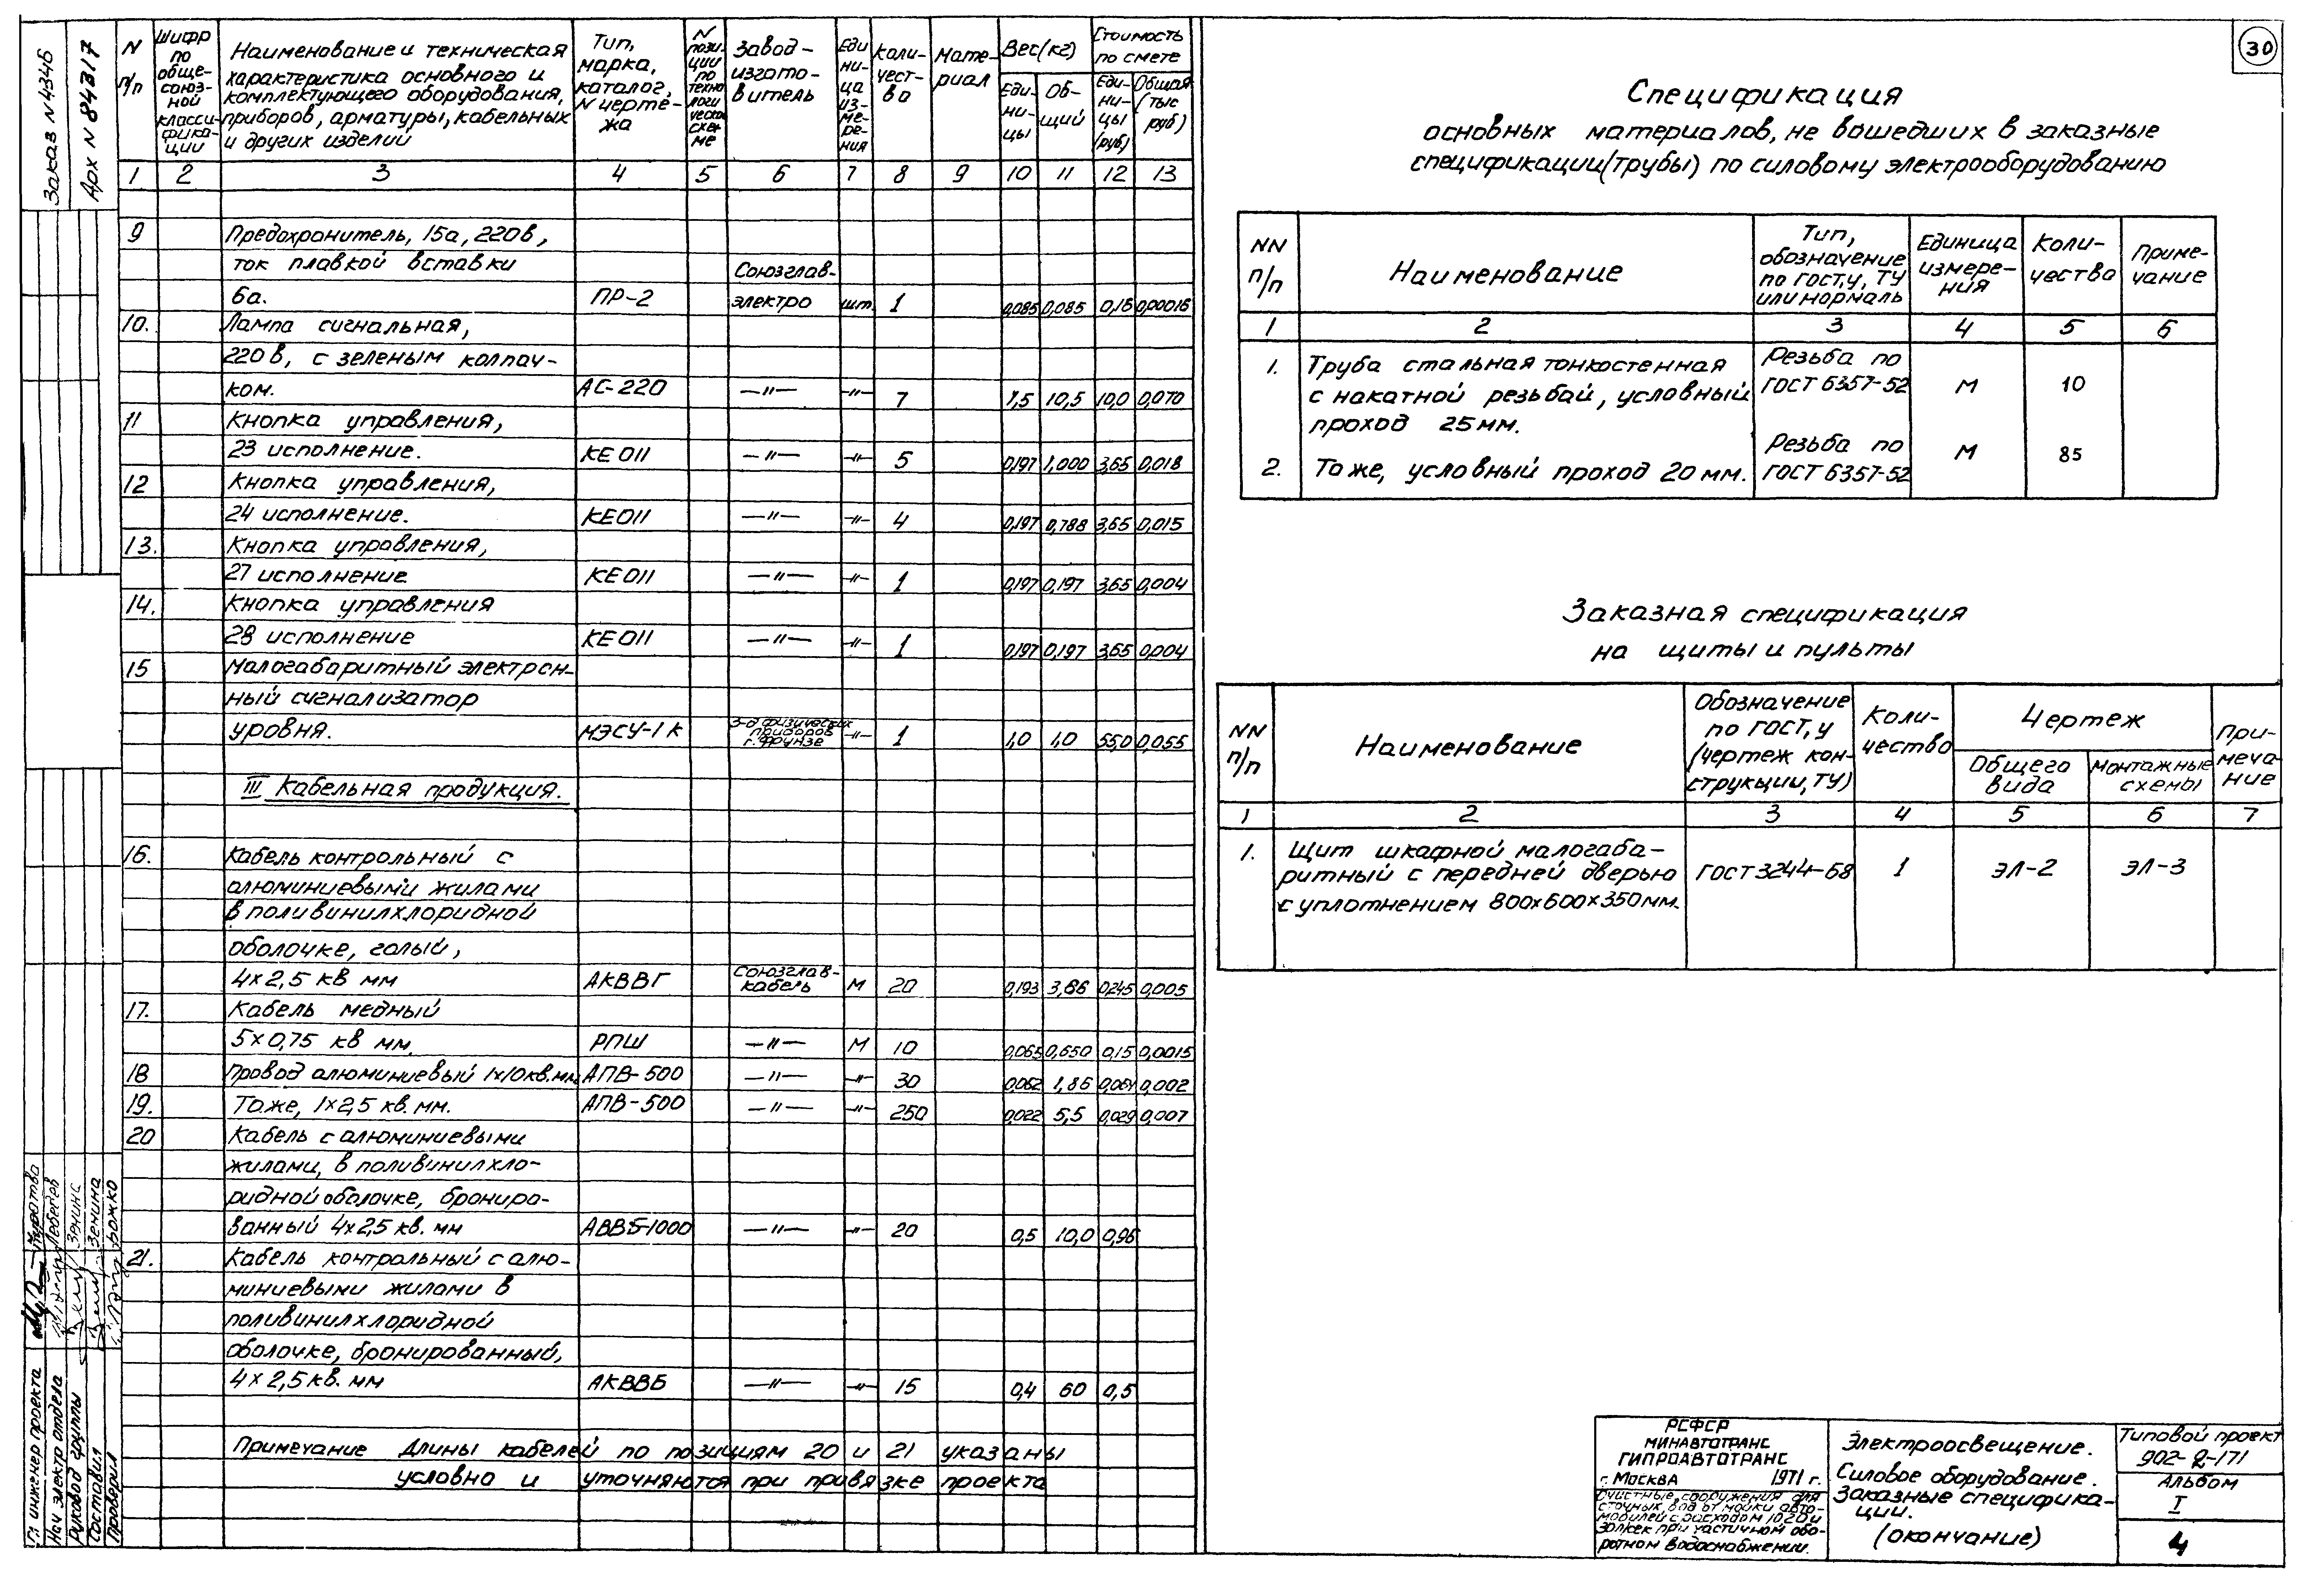 Заказ N 4534Б
Арх N 84317
N п/п
Шифр по обще-союз-ной класси-фика-ции
Наименование и техническая характеристика основного и комплектующего оборудования, приборов, арматуры, кабельных и других изделий
Тип, марка, каталог, N черте-жа
N пози-ции по техно логи ческой схе-ме
Завод-изгото-витель
Еди ни-ца из-ме-ре-ния
Коли-чест-во
Мате-риал
Вес (кг)
Еди-ни-цы
Об-щий
Стоимость по смете
Еди-ни-цы (руб)
Общая (тыс руб)
1 2 3 4 5 6 7 8 9 10 11 12 13
9 Предохранитель, 15а, 220в,
ток плавкой вставки Союзглав-
6а. ПР-2 электро шт. 1 0,085 0,085 0,16 0,00016
10. Лампа сигнальная,
220в, с зеленым колпач-
ком. АС-220 —"— —"— 7 1,5 10,5 10,0 0,070
11 Кнопка управления,
23 исполнение. КЕ011 —"— —"— 5 0,197 1,000 3,65 0,018
12 Кнопка управления,
24 исполнение. КЕ011 —"— —"— 4 0,197 0,788 3,65 0,015
13. Кнопка управления,
27 исполнение КЕ011 —"— —"— 1 0,197 0,197 3,65 0,004
14. Кнопка управления
28 исполнение КЕ011 —"— —"— 1 0,197 0,197 3,65 0,004
15 Малогабаритный электрон-
ный сигнализатор
уровня. МЭСУ-1К з-д физических приборов г. Фрунзе —"— 1 1,0 1,0 55,0 0,055
III Кабельная продукция.
16. Кабель контрольный с
алюминиевыми жилами
в поливинилхлоридной
оболочке, голый,
4х2,5 кв мм АКВВГ Союзглав-кабель М 20 0,193 3,86 0,245 0,005
17. Кабель медный
5х0,75 кв мм. РПШ —"— М 10 0,065 0,650 0,15 0,0015
18 Провод алюминиевый 1х10кв.мм АПВ-500 —"— —"— 30 0,062 1,86 0,064 0,002
19. Тоже, 1х2,5 кв. мм. АПВ-500 —"— —"— 250 0,022 5,5 0,029 0,007
20 Кабель с алюминиевыми
жилами, в поливинилхло-
ридной оболочке, брониро-
ванный 4х2,5 кв. мм АВВБ-1000 —"— —"— 20 0,5 10,0 0,96
21. Кабель контрольный с алю-
миниевыми жилами в
поливинилхлоридной
оболочке, бронированный,
4х2,5 кв. мм АКВВБ —"— —"— 15 0,4 60 0,5
Примечание Длины кабелей по позициям 20 и 21 указаны
условно и уточняются при привязке проекта
Гл инженер проекта
Нач электро отдела Лебегев
Руковод группы Зенина
Составил Зенина
Проверил Рожко
30
Спецификация
основных материалов, не вошедших в заказные
спецификации (трубы) по силовому электрооборудованию
NN п/п
Наименование
Тип, обозначение по ГОСТ,у, ТУ или нормаль
Единица измере-ния
Коли-чества
Приме-чание
1 2 3 4 5 6
1. Труба стальная тонкостенная Резьба по
с накатной резьбай, условный ГОСТ 6357-52 М 10
проход 25мм.
Резьба по
2. Тоже, условный проход 20 мм. ГОСТ 6357-52 М 85
Заказная спецификация
на щиты и пульты
NN п/п
Наименование
Обозначение по ГОСТ,у (чертеж кон-струкции, ТУ)
Коли-чество
Чертеж
Общего вида
Монтажные схемы
При-меча-ние
1 2 3 4 5 6 7
1. Щит шкафной малогаба-
ритный с передней дверью ГОСТ 3244-68 1 ЭЛ-2 ЭЛ-3
с уплотнением 800х600х350мм.
РСФСР
МИНАВТОТРАНС
ГИПРОАВТОТРАНС
г. Москва 1971 г.
Очистные сооружения для
сточных вод от мойки авто-
мобилей с расходом 10,20 и
30л/сек при частичном обо-
ротном водоснабжении.
Электроосвещение.
Силовое оборудование.
Заказные специфика-
ции.
(окончание)
Типовой проект
902-2-171
Альбом
I
4